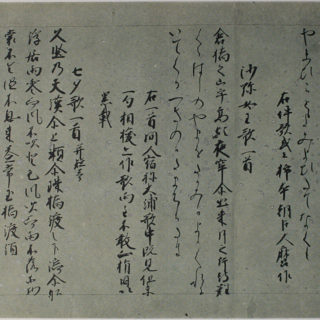 右件歌或云柿本朝臣人麿作
沙弥女王歌一首
倉橋之山乎高歟夜牢尓出来月之片待難
くらはしのやまをたかみかよこもりに
いてくるつきのかたまちかたき
右一首間人宿祢大浦歌中既見但末
一句相換亦作歌両主不敢正指因以
累載
七夕歌一首并短歌
久堅乃天漢尓上瀬尓珠橋渡之下湍尓船
浮居雨零而風不吹登毛風吹而雨不落等物
裳不令濕不息来益常玉橋渡須